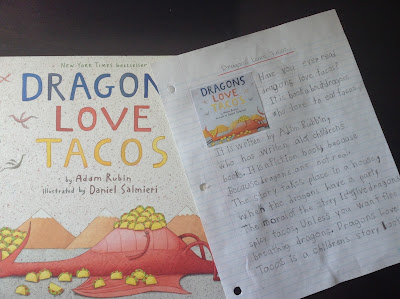 New York Times bestseller
DRAGONS
LOVE
TACOS
by Adam Rubin
illustrated by Daniel Salmieri
Dragons Love Tacos
DRAGONS
LOVE
TACOS
Have you ever read
dragons love tacos?
It is book about dragons
who love to eat tacos.
It is written by Adam Rubin
who has written children's
books. It is a fiction book because
dragons are not real.
The story takes place to a
when the dragons have a party
The moral of the story is give dragons
spicy tacos. Unless you want fire
breathing dragons. Dragons Love
Tacos is a childrens story